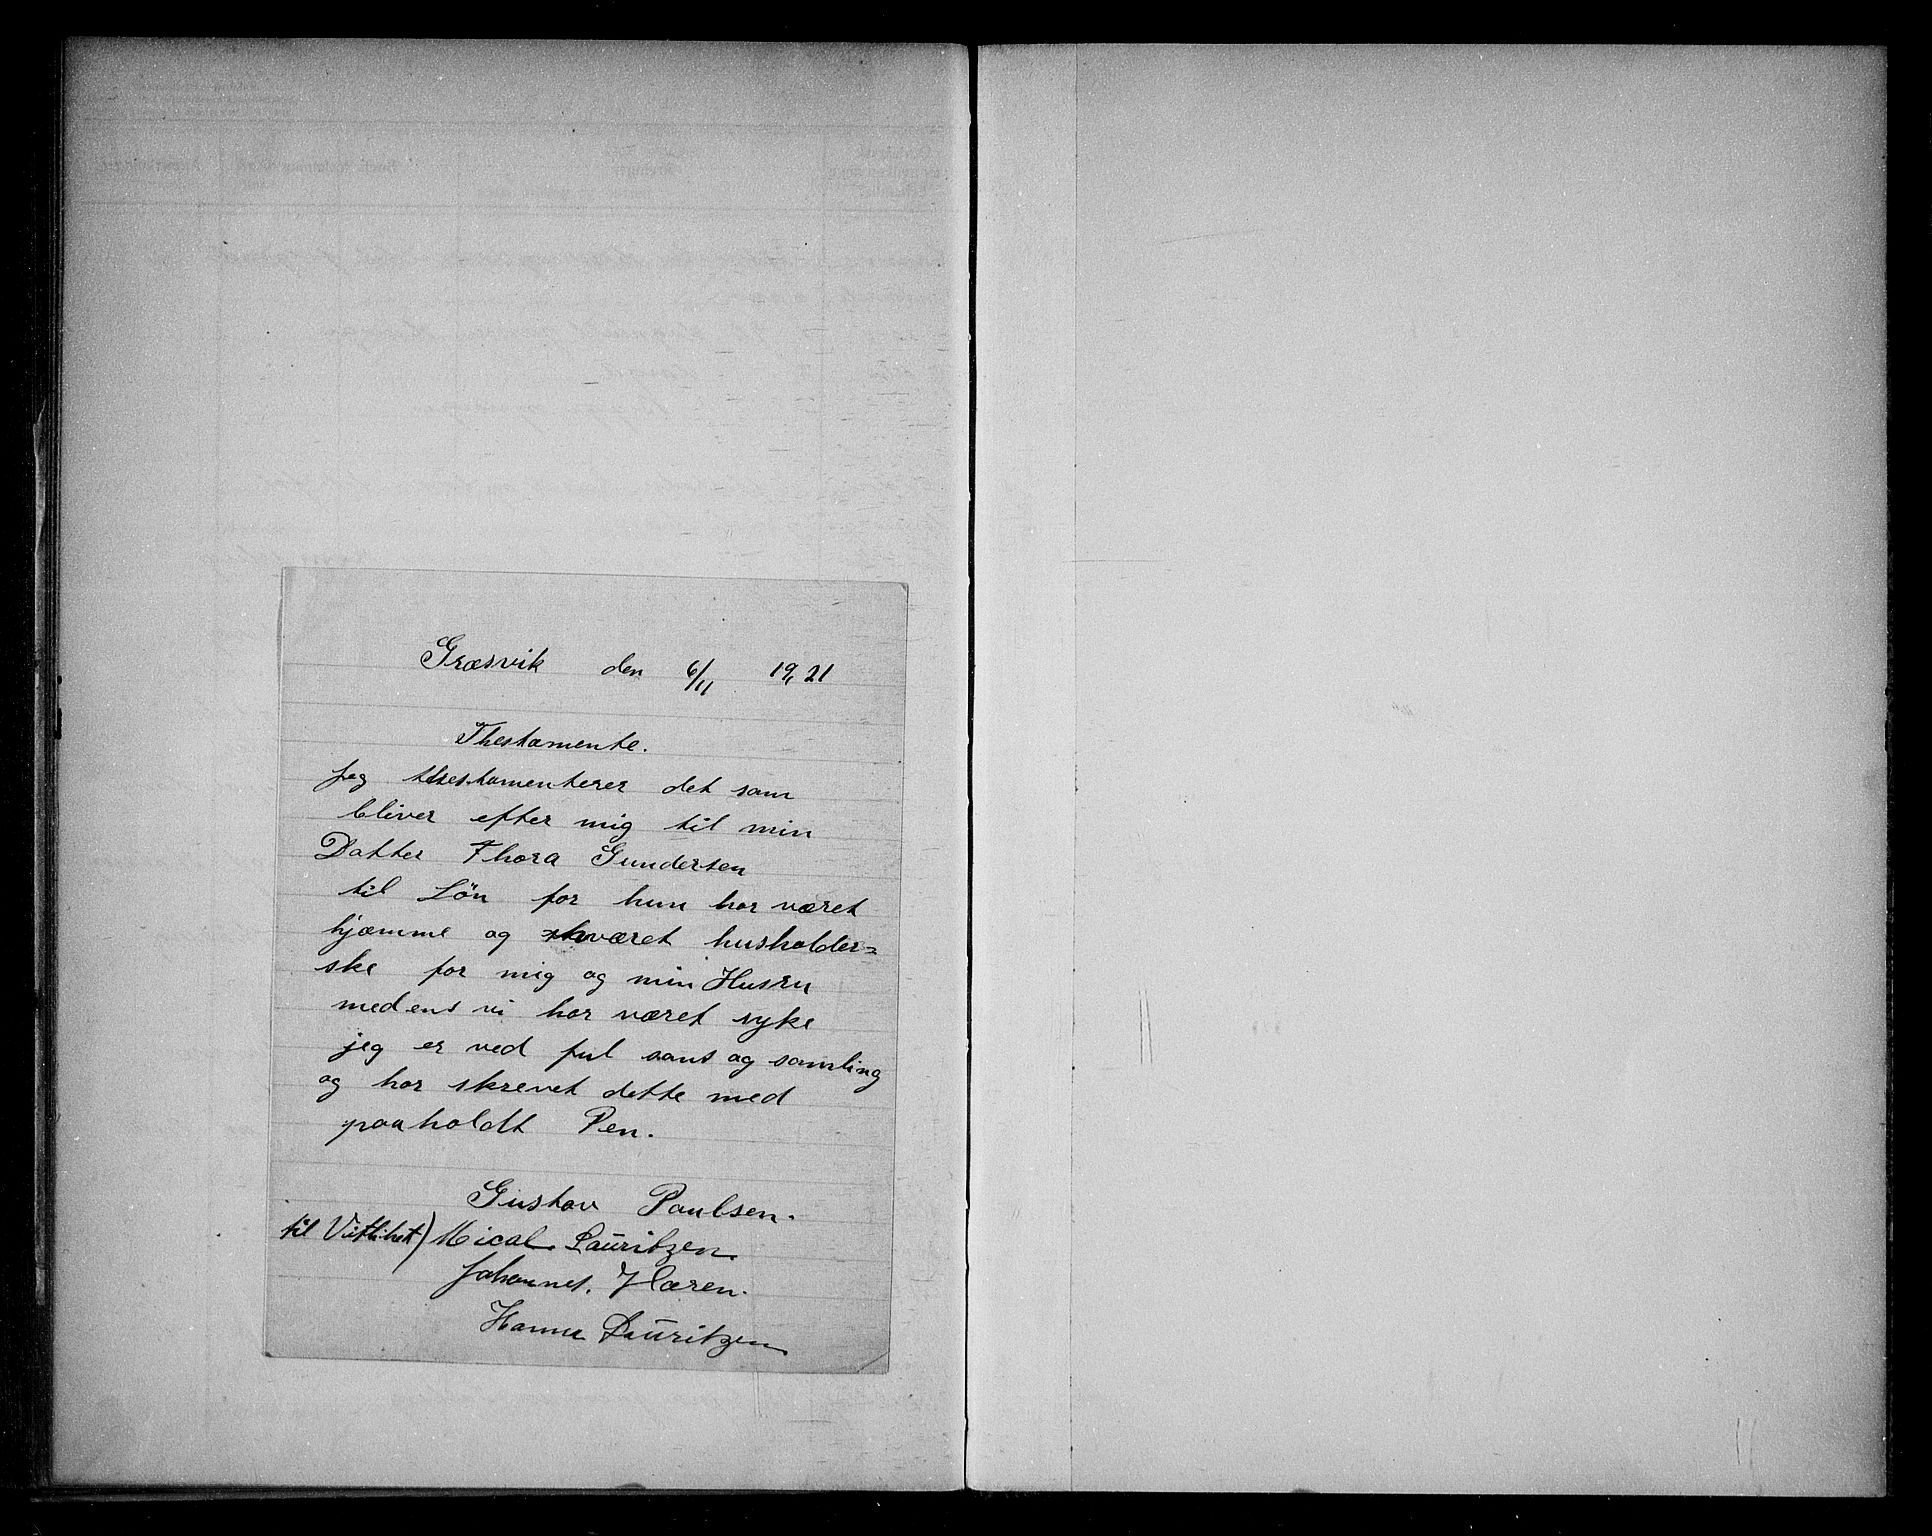 Græsvik den 6/11 19, 21
Thestamente.
Jeg thestamenterer det som
bliver efter mig til min
Datter Thora Gundersen
til Løn for hun har været
hjæmme og været husholder=
ske for mig og min Husru
medens vi har været syke
jeg er ved ful sans og samling
og har skrevet dette med
paaholdt Pen.
Gustav Paulsen.
til Vitlihet) Mical Lauritzen
Johannes. Hæren.
Hanna Lauritzen